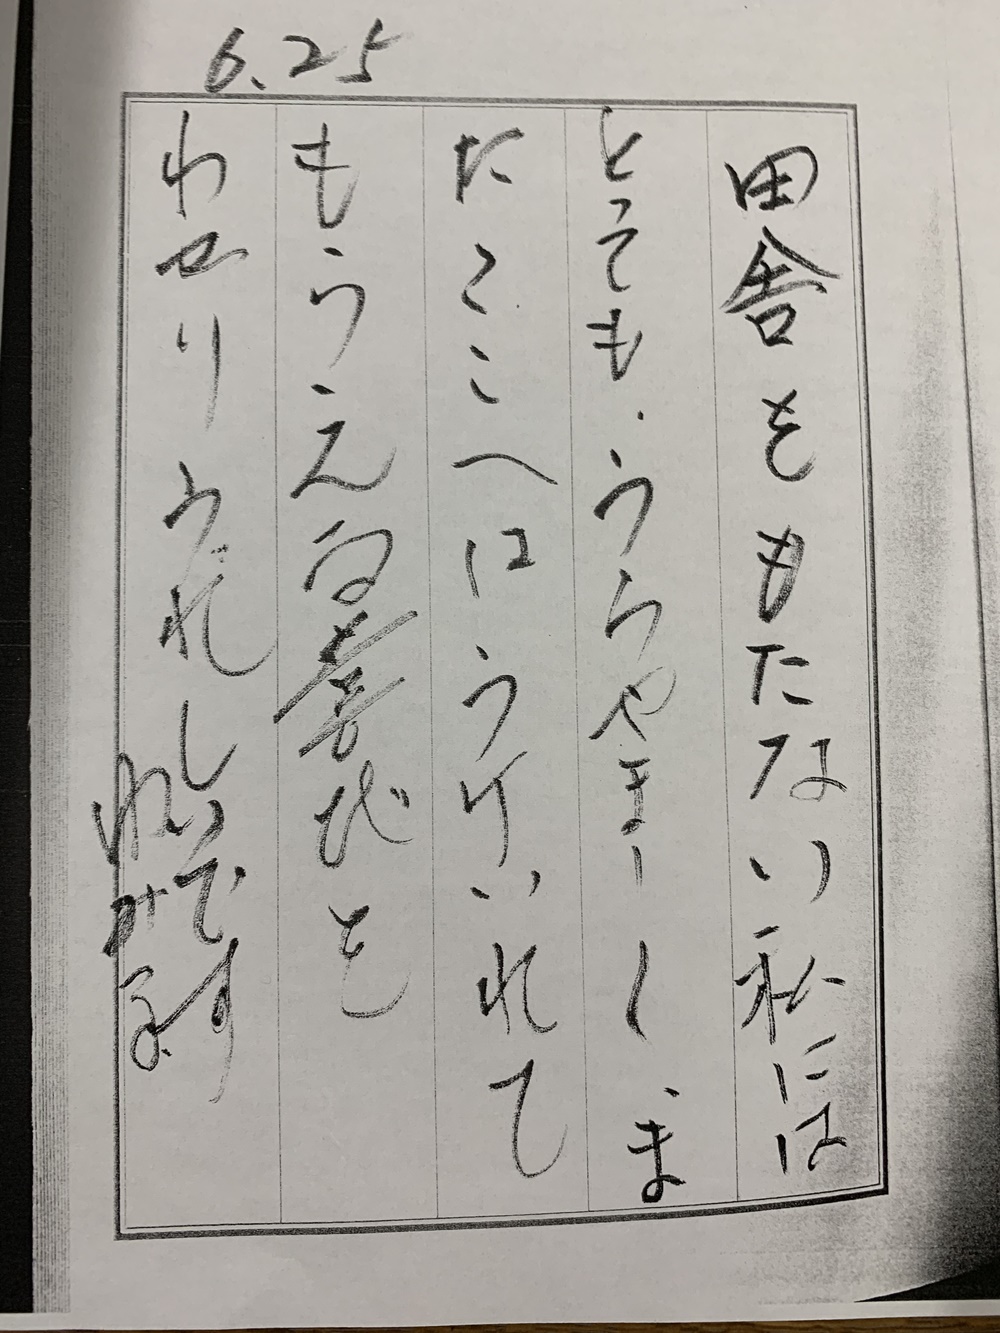 6.25
田舎をもたない私には
とても、うらやましく、ま
たここへはうけいれて
もうえ
わせりうれしいです